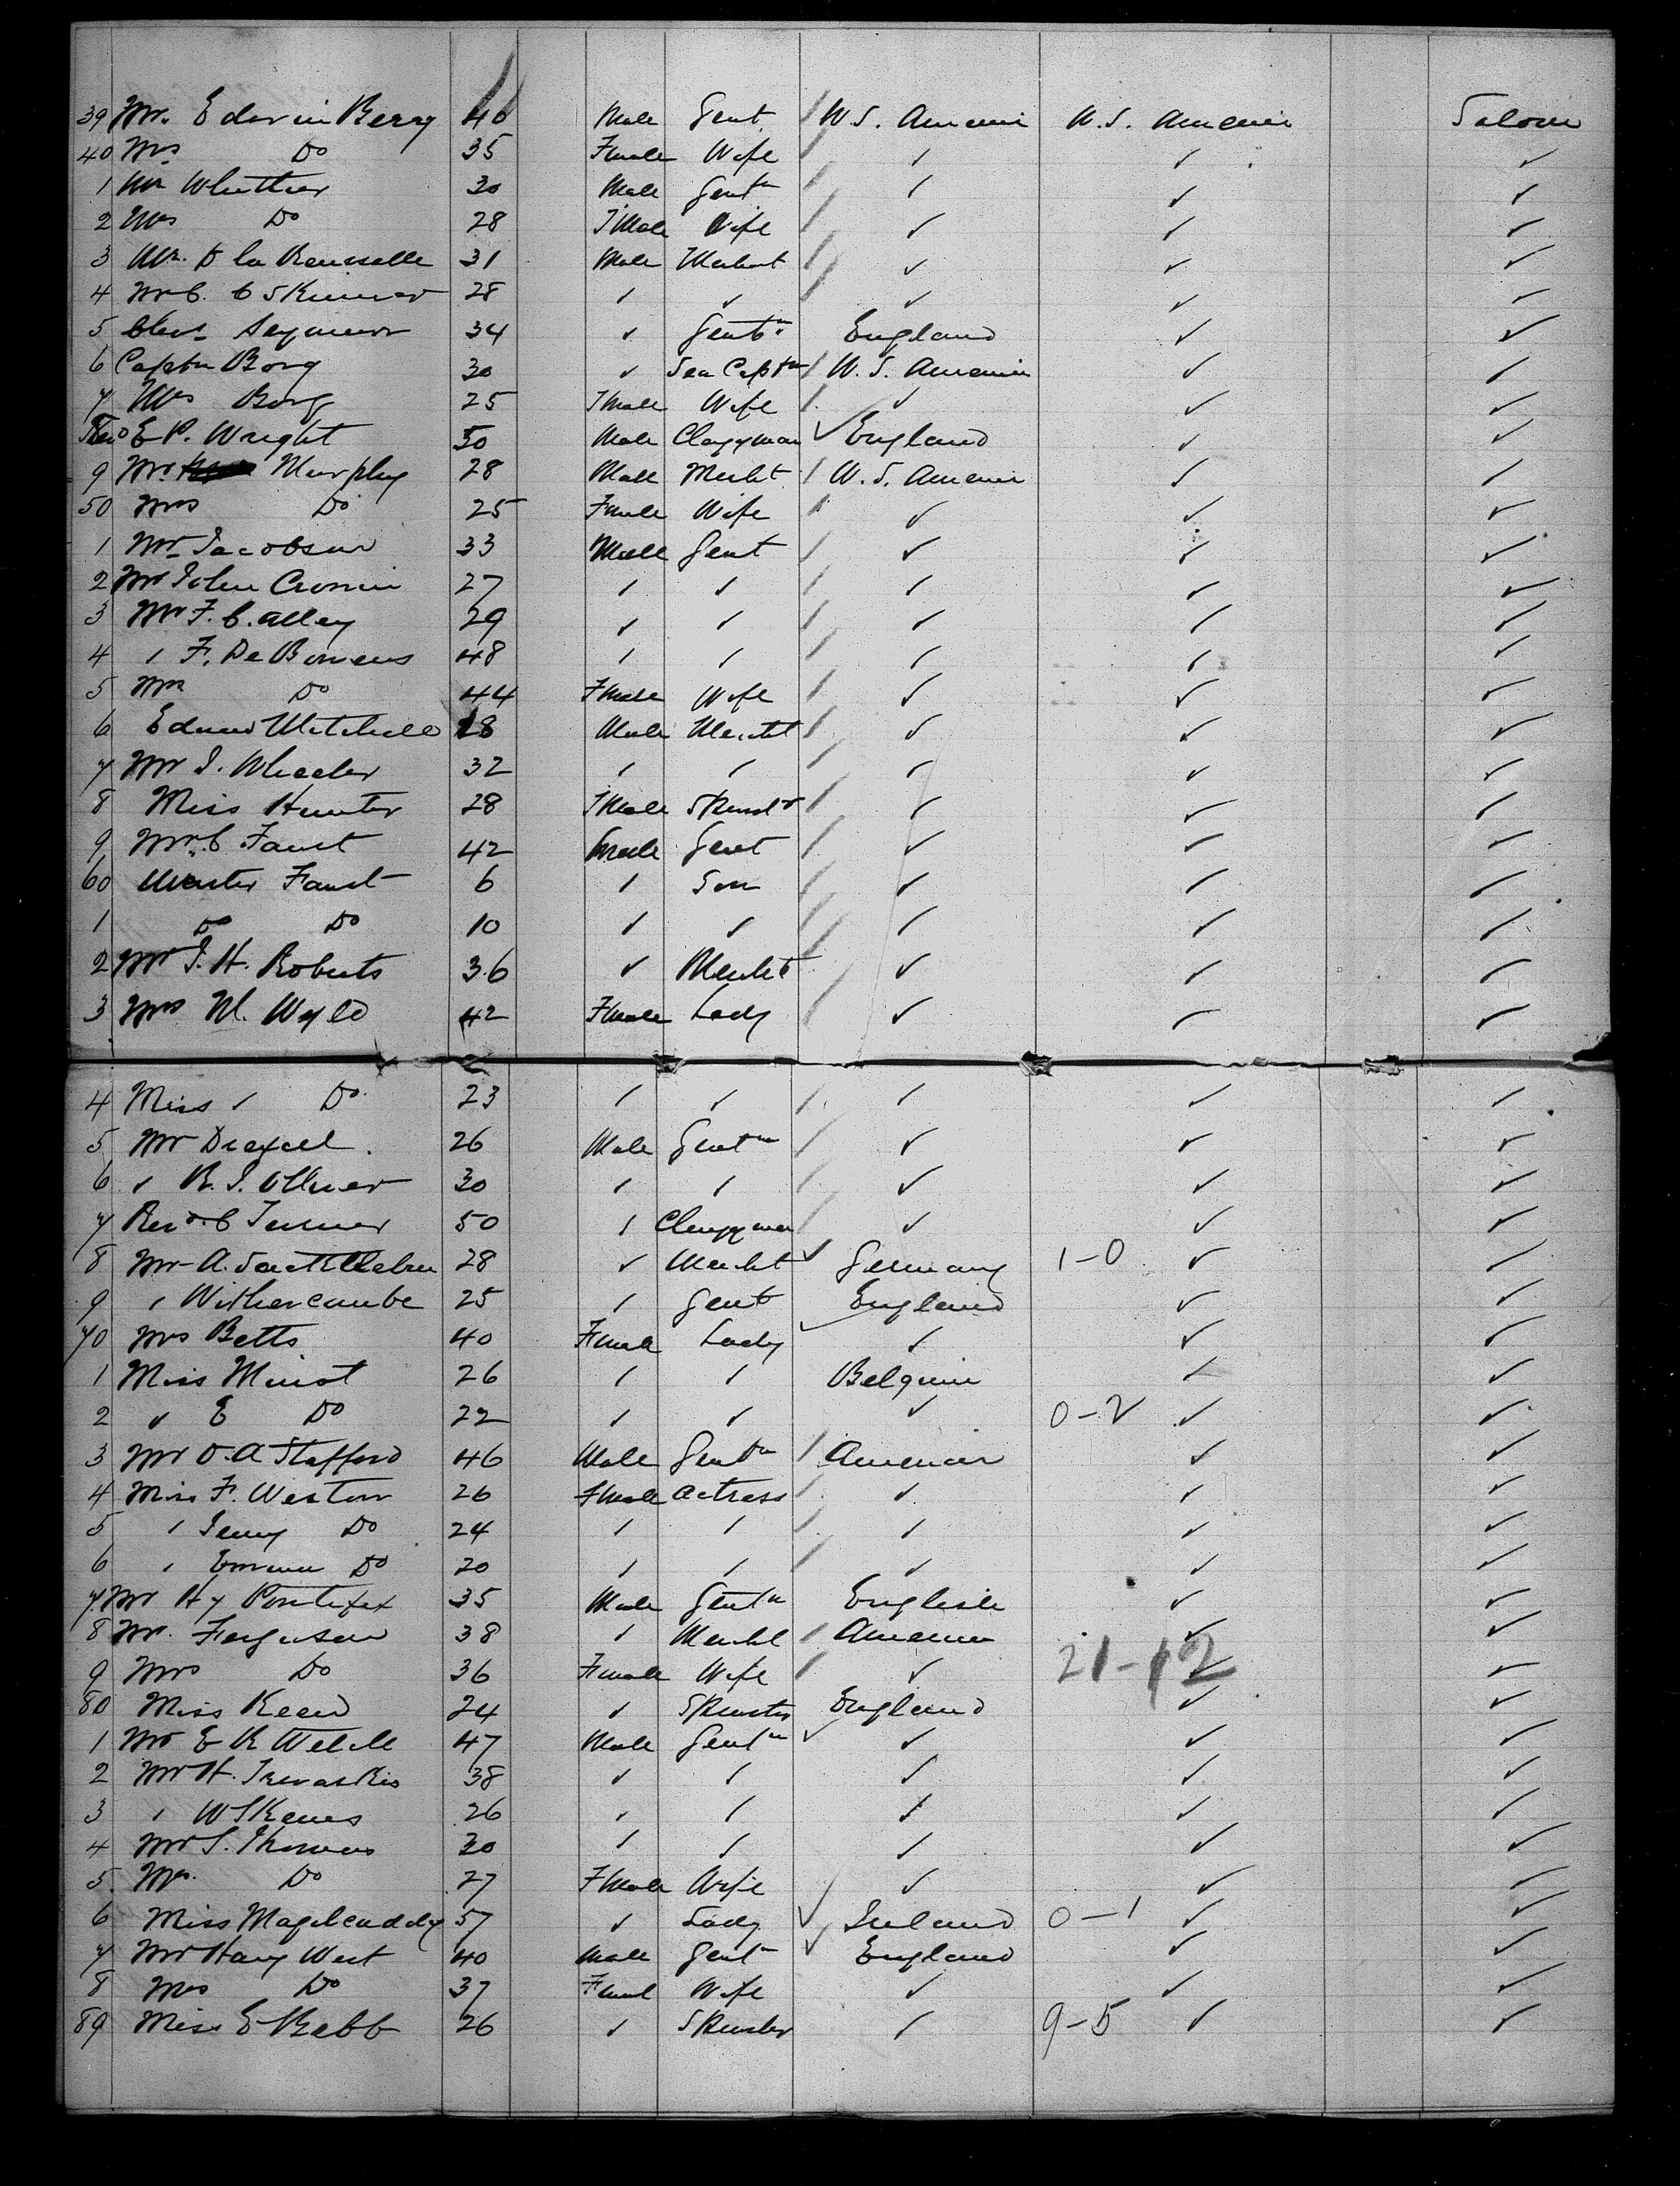 39 Mr. Edwin Berry 40 Male Gent U.S. America U.S. America Saloon
40 Mrs Do 35 Fmale Wife ✓ ✓ ✓
1 Mr Whittier 30 Male Gentn ✓ ✓ ✓
2 Mrs Do 28 Fmale Wife ✓ ✓ ✓
3 Mr. D la 31 Male ✓ ✓ ✓
4 Mr C. C Skinner 28 ✓ ✓ ✓ ✓ ✓
5 Chas Seymour 34 ✓ Gentn England ✓ ✓
6 Captn Borg 30 ✓ Sea Captn U.S. America ✓ ✓
7 Mrs Borg 25 Fmale Wife ✓ ✓ ✓
Revd E P. Wright 50 Male Clergyman England ✓ ✓
9 Mr. Murphy 28 Male Mercht U.S. America ✓ ✓
50 Mrs Do 25 Fmale Wife ✓ ✓ ✓
1 Mr Jacobson 33 Male Gent ✓ ✓ ✓
2 Mr John Cronin 27 ✓ ✓ ✓ ✓ ✓
3 Mr F. C. Alley 29 ✓ ✓ ✓ ✓ ✓
4 ✓ F. De 48 ✓ ✓ ✓ ✓ ✓
5 Mrs Do 44 Fmale Wife ✓ ✓ ✓
6 Edward Mitchell 28 Male Mercht ✓ ✓ ✓
7 Mr J. Wheeler 32 ✓ ✓ ✓ ✓ ✓
8 Miss Hunter 28 Fmale Spinstr ✓ ✓ ✓
9 Mr. C Faust 42 Male Gent ✓ ✓ ✓
60 Master Faust 6 ✓ Son ✓ ✓ ✓
1 Do Do 10 ✓ ✓ ✓ ✓ ✓
2 Mr J. H. Roberts 36 ✓ Mercht ✓ ✓ ✓
3 Mrs M. Wyld 42 Fmale Lady ✓ ✓ ✓
4 Miss ✓ Do 23 ✓ ✓ ✓ ✓ ✓
5 Mr Drexell 26 Male Gentn ✓ ✓ ✓
6 ✓ R. J. 30 ✓ ✓ ✓ ✓ ✓
7 Revd. C 50 ✓ Clergyman ✓ ✓ ✓
8 Mr A. 28 ✓ Mercht Germany 1-0 ✓ ✓
9 ✓ Withercombe 25 ✓ Gent England ✓ ✓
70 Mrs Betts 40 Fmale Lady ✓ ✓ ✓
1 Miss Minot 26 ✓ ✓ Belgium ✓ ✓
2 ✓ E Do 22 ✓ ✓ ✓ 0-2 ✓ ✓
3 Mr O. A Stafford 46 Male Gentn America ✓ ✓
4 Miss F. Weston 26 Fmale Actress ✓ ✓ ✓
5 ✓ Jenny Do 24 ✓ ✓ ✓ ✓ ✓
6 ✓ Emma Do 20 ✓ ✓ ✓ ✓ ✓
7 Mr Hy Pontifex 35 Male Gentn English ✓ ✓
8 Mr. Ferguson 38 ✓ Mercht America ✓ ✓
9 Mrs Do 36 Fmale Wife ✓ 21-12 ✓ ✓
80 Miss Keed 24 ✓ Spinster England ✓ ✓
1 Mr E R Welch 47 Male Gentn ✓ ✓ ✓
2 Mr H. Trevaskis 38 ✓ ✓ ✓ ✓ ✓
3 ✓ W Skeues 26 ✓ ✓ ✓ ✓ ✓
4 Mr S. Thomas 30 ✓ ✓ ✓ ✓ ✓
5 Mrs Do 27 Fmale Wife ✓ ✓ ✓
6 Miss Magilcuddy 57 ✓ Lady Ireland 0-1 ✓ ✓
7 Mr Harry West 40 Male Gentn England ✓ ✓
8 Mrs Do 37 Fmal Wife ✓ ✓ ✓
89 Miss E Kebb 26 ✓ Spinster ✓ 9-5 ✓ ✓